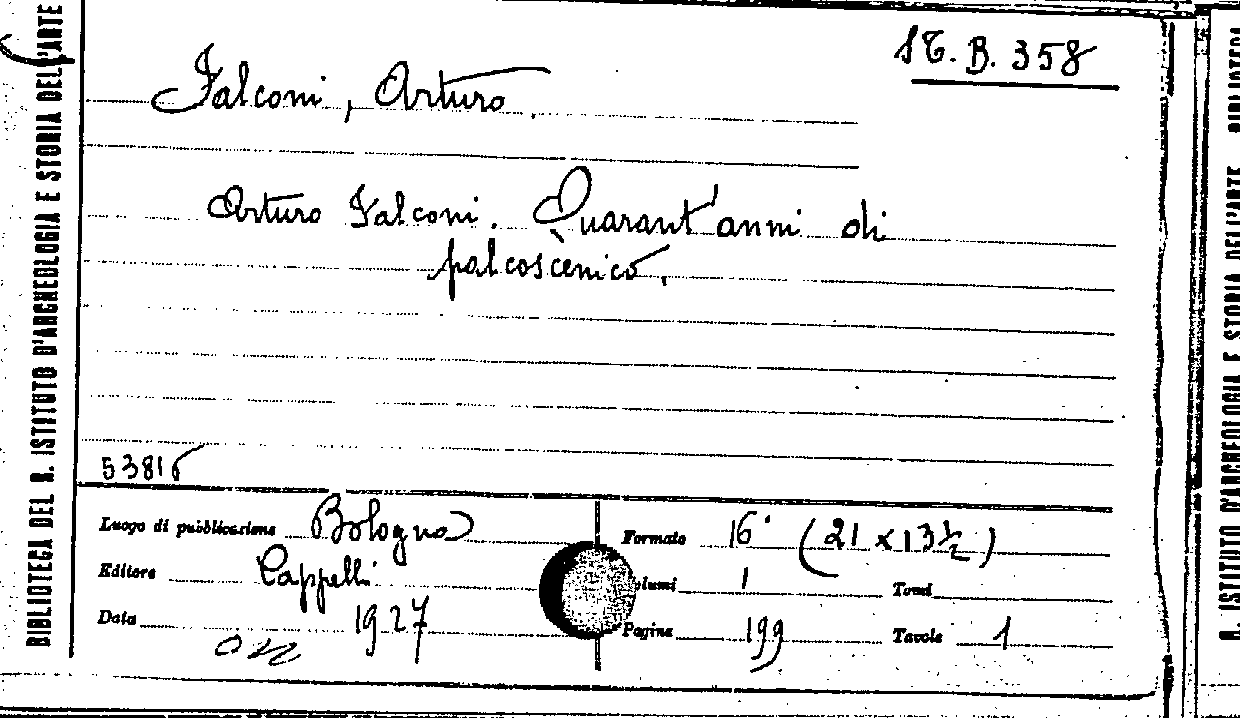 BIBLIOTECA DEL R. ISTITUTO D'ARCHEOLOGIA E STORIA DELL'ARTE
St. B. 358
Falconi, Arturo.
Arturo Falconi. Quarant'anni di
palcoscenico.
53816
Luogo di pubblicazione Bologna
Formato 16° (21 x 13½)
Editore Cappelli
Volumi 1
Tomi
Data 1927
Pagine 199
Tavole 1
R. ISTITUTO D'ARCHEOLOGIA E STORIA DELL'ARTE